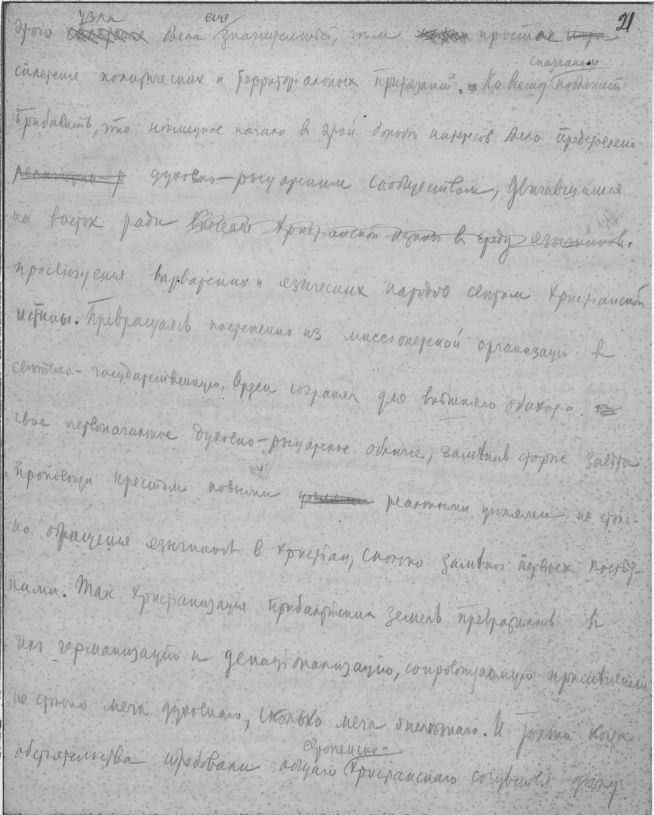 21
узла еще
этого была значительней, чем простое
сказанному
сплетение политических и территориальных притязаний. Ко всему надлежит
прибавить, что немецкое начало в этой борьбе интересов было представлено
духовно-рыцарским сообществом, двигавшимся
на восток ради внесения христианской в среду язычников.
просвещения варварских и языческих народов светом христианской
истины. Превращаясь постепенно из миссионерской организации в
светско-государственную, Орден сохранял для внешнего обихода
свое первоначальное духовно-рыцарское обличье, заменив старые заветы
проповеди крестом новыми реальными целями не столь-
ко обращения язычников в христиан, сколько замены первых послед-
ними. Так христианизация прибалтийских земель превратилась в
их германизацию и денационализацию, сопровождаемую
не столько меча духовного, сколько меча железного. И только когда
европейско-
обстоятельства требовали общаго христианскаго сочувствия